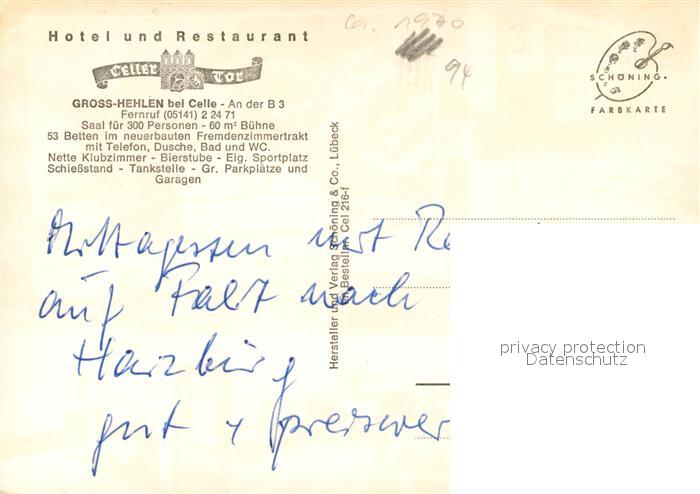 Hotel und Restaurant
Celler Tor
GROSS-HEHLEN bei Celle - An der B 3
Fernruf (05141) 2 24 71
Saal für 300 Personen - 60 m² Bühne
53 Betten im neuerbauten Fremdenzimmertrakt
mit Telefon, Dusche, Bad und WC.
Nette Klubzimmer - Bierstube - Eig. Sportplatz
Schießstand - Tankstelle - Gr. Parkplätze und
Garagen
ca. 1970
94
SCHÖNING
FARBKARTE
Hersteller und Verlag Schöning & Co., Lübeck
Bestellnr. Cel 216-f
Mittagessen mit Re
auf Fahrt nach
Harzburg
gut + preiswer
privacy protection
Datenschutz